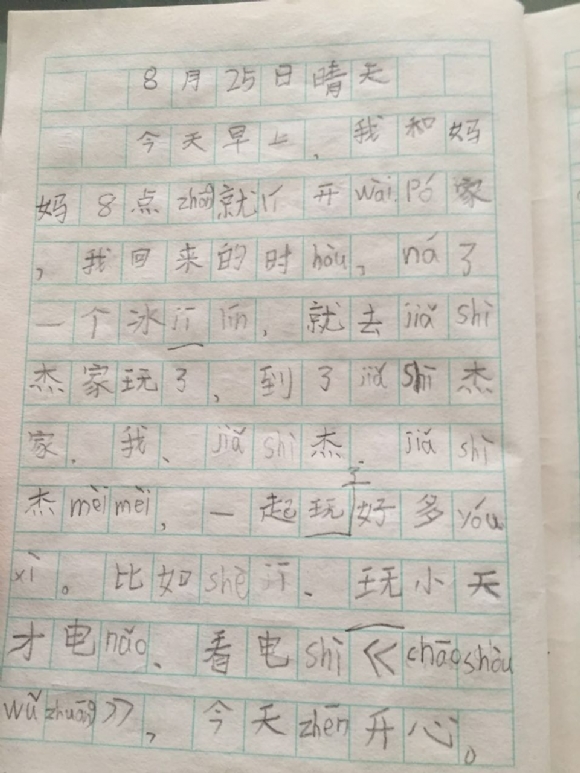 8月25日晴天
今天早上，我和妈
妈8点zhōng就lí开wài pó家
，我回来的时hòu，ná了
一个冰jī lín，就去jiǎ shì
杰家玩了，到了jiǎ shì杰
家，我、jiǎ shì杰、jiǎ shì
杰mèi mèi，一起玩了好多yóu
xì。比如shè jī、玩小天
才电nǎo、看电shì《chāo shòu
wǔ zhuāng》，今天zhēn开心。